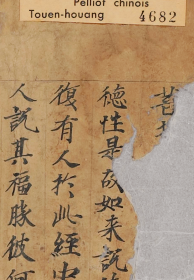 Pelliot chinois
Touen-houang 4682
菩
德性是故如来說
復有人於此經中
人說其福勝彼何